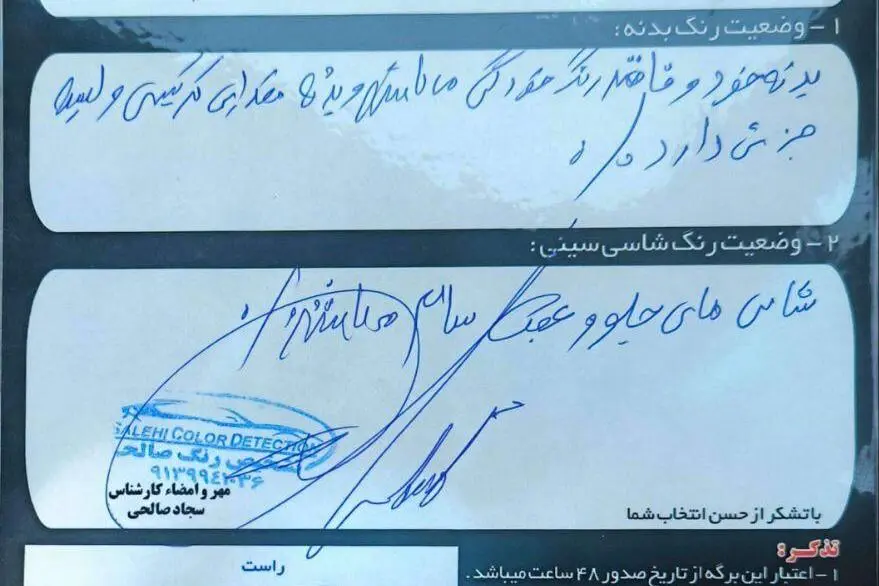 ۱ - وضعیت رنگ بدنه:
بدنه خود و فاقد رنگ خوردگی میباشد و بدنه مقداری و لیسه
جزئی دارد
۲ - وضعیت رنگ شاسی سینی:
شاسی های جلو و عقب سالم میباشد
SALEHI COLOR DETECTION
تشخیص رنگ صالحی
مهر و امضاء کارشناس
سجاد صالحی
باتشکر از حسن انتخاب شما
تذکر:
۱ - اعتبار این برگه از تاریخ صدور ۴۸ ساعت میباشد.
راست